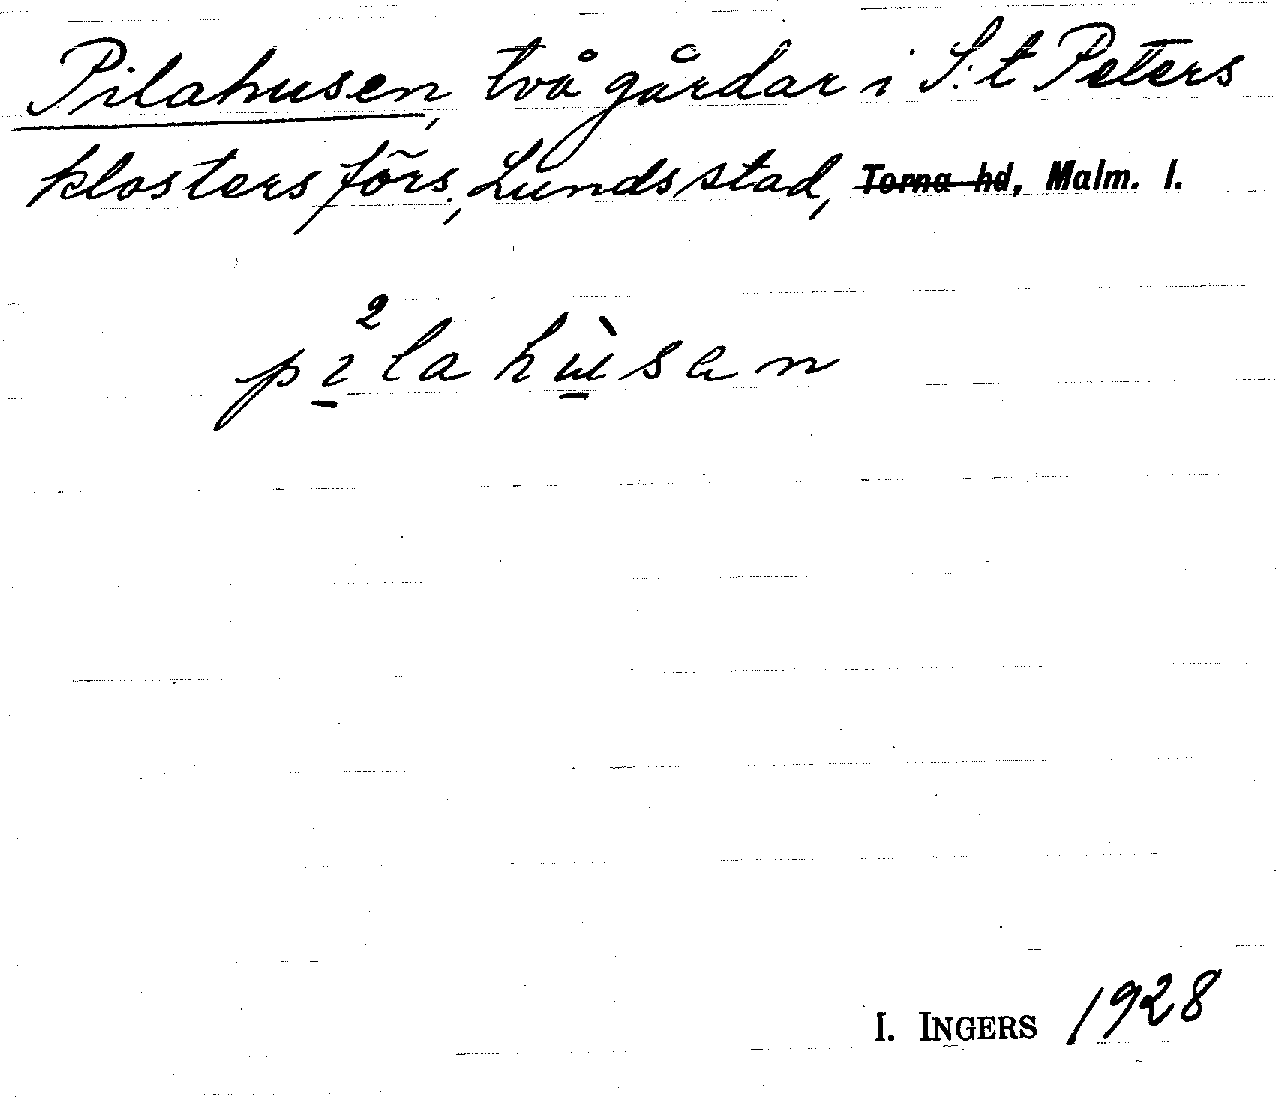 Pilahusen, två gårdar i S:t Peters
klosters förs., Lunds stad, Torna hd, Malm. l.
pı̱²lahù̱sen
I. INGERS 1928